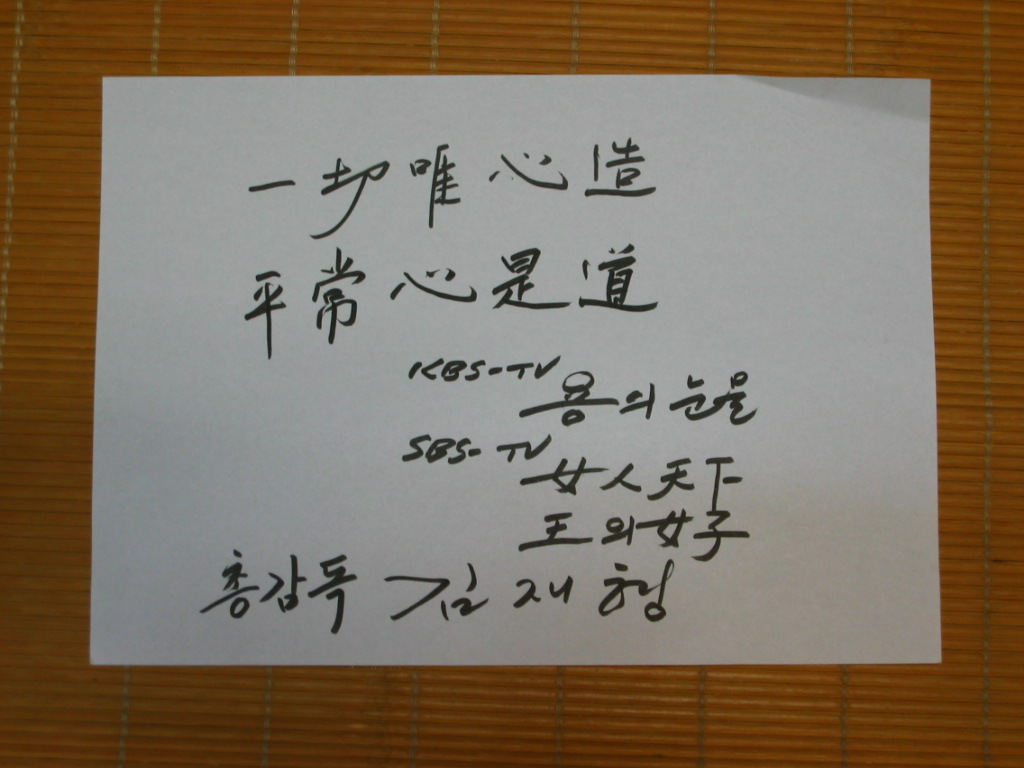 一切唯心造
平常心是道
KBS-TV 용의 눈물
SBS-TV 女人天下
王의女子
총감독 김재형